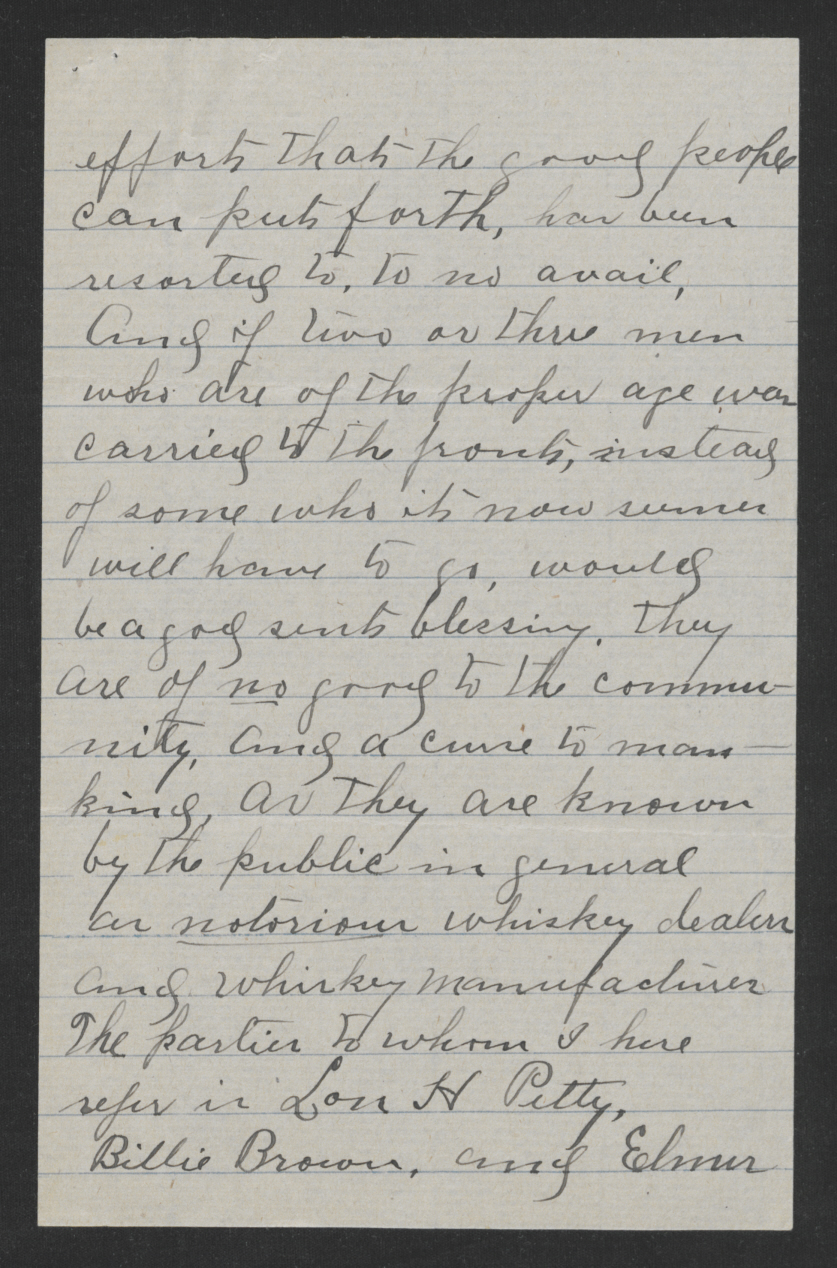 efforts that the good people
can put forth, has been
resorted to, to no avail,
And if two or three men
who are of the proper age was
carried to the front, instead
of some who it now seems
will have to go, would
be a god sent blessing. They
are of no good to the commu-
nity, and a curse to man-
kind, as they are known
by the public in general
as notorious whiskey dealers
and whiskey manufacturers
The parties to whom I here
refer is Lon H Petty,
Billie Brown, and Elmer